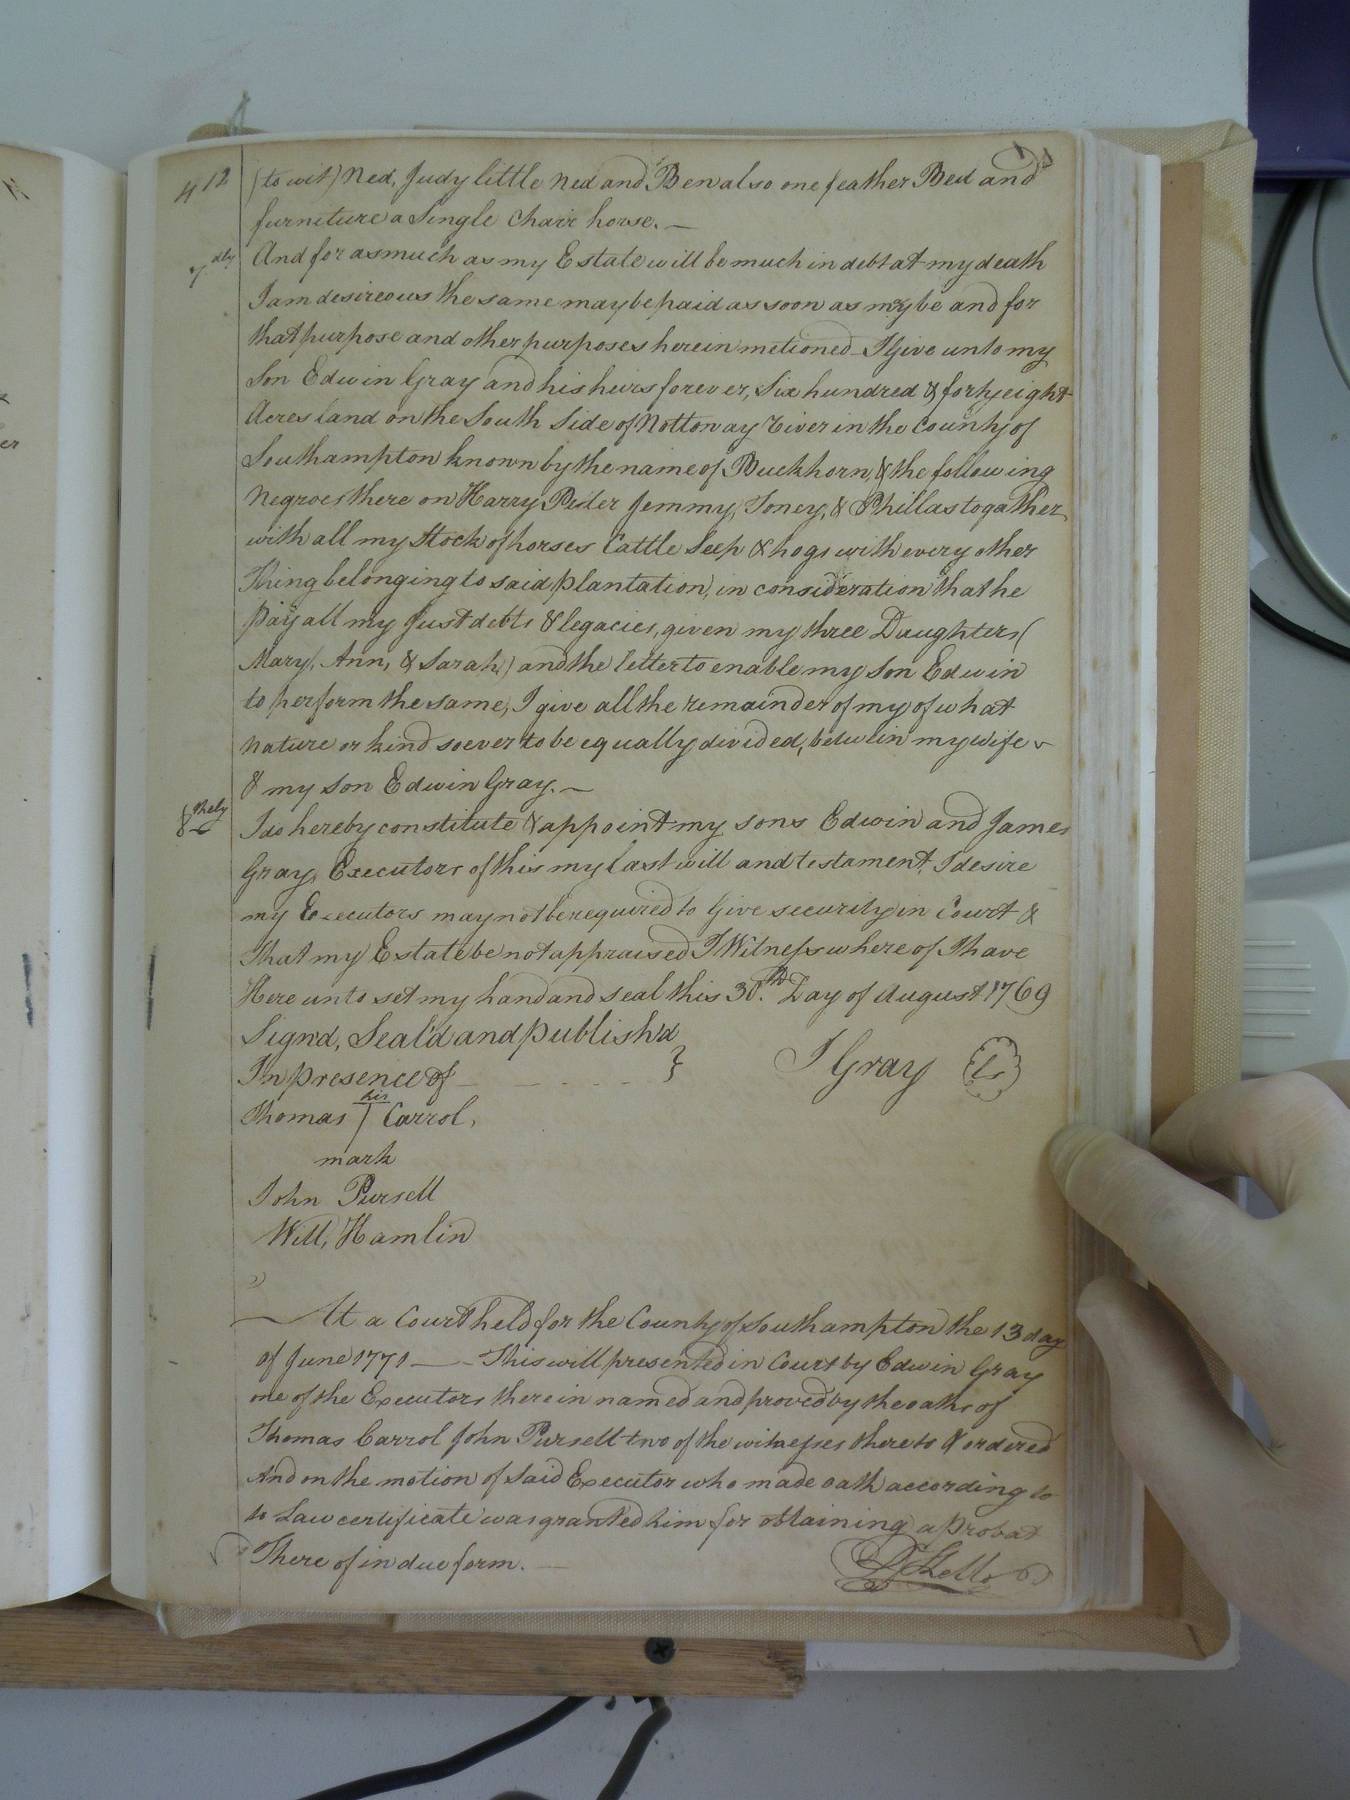 412
(to wit) Ned, Judy little Ned and Ben also one feather Bed and
furniture a Single Chair horse. —
7dly And for asmuch as my Estate will be much in debt at my death
I am desireous the same may be paid as soon as may be and for
that purpose and other purposes herein metioned I Give unto my
Son Edwin Gray and his heirs forever, Six hundred & forty eight
Acres land on the South Side of Nottoway River in the County of
Southampton known by the name of Buckhorn, & the following
Negroes there on Harry Peter Jemmy, Toney, & Phillas togather
with all my Stock of horses Cattle Seep & hogs with every other
Thing belonging to said plantation, in consideration that he
Pay all my Just debts & legacies, given my three Daughters (
Mary, Ann, & Sarah) and the letter to enable my Son Edwin
to perform the same, I give all the remainder of my of what
Nature or kind soever to be equally divided, betwein my wife
& my Son Edwin Gray. —
8thely I do hereby constitute & appoint my sons Edwin and James
Gray, Executors of this my last will and testament, I desire
my Executors may not be required to Give security in Court &
That my Estate be not appraised I Witness where of I have
Here unto set my hand and seal this 30.th Day of August 1769
Sign'd, Seal'd and publish'd }
In presence of
J Gray L
his
Thomas T Carrol,
mark
John Pursell
Will, Hamlin
At a Court held for the County of Southampton the 13 day
of June 1771 — This will presented in Court by Edwin Gray
one of the Executors therein named and proved by the oaths of
Thomas Carrol John Pursell two of the witnesses there to & ordered
And on the motion of Said Executor who made oath according to
to Law certificate was granted him for obtaining a Probat
There of in due form. —